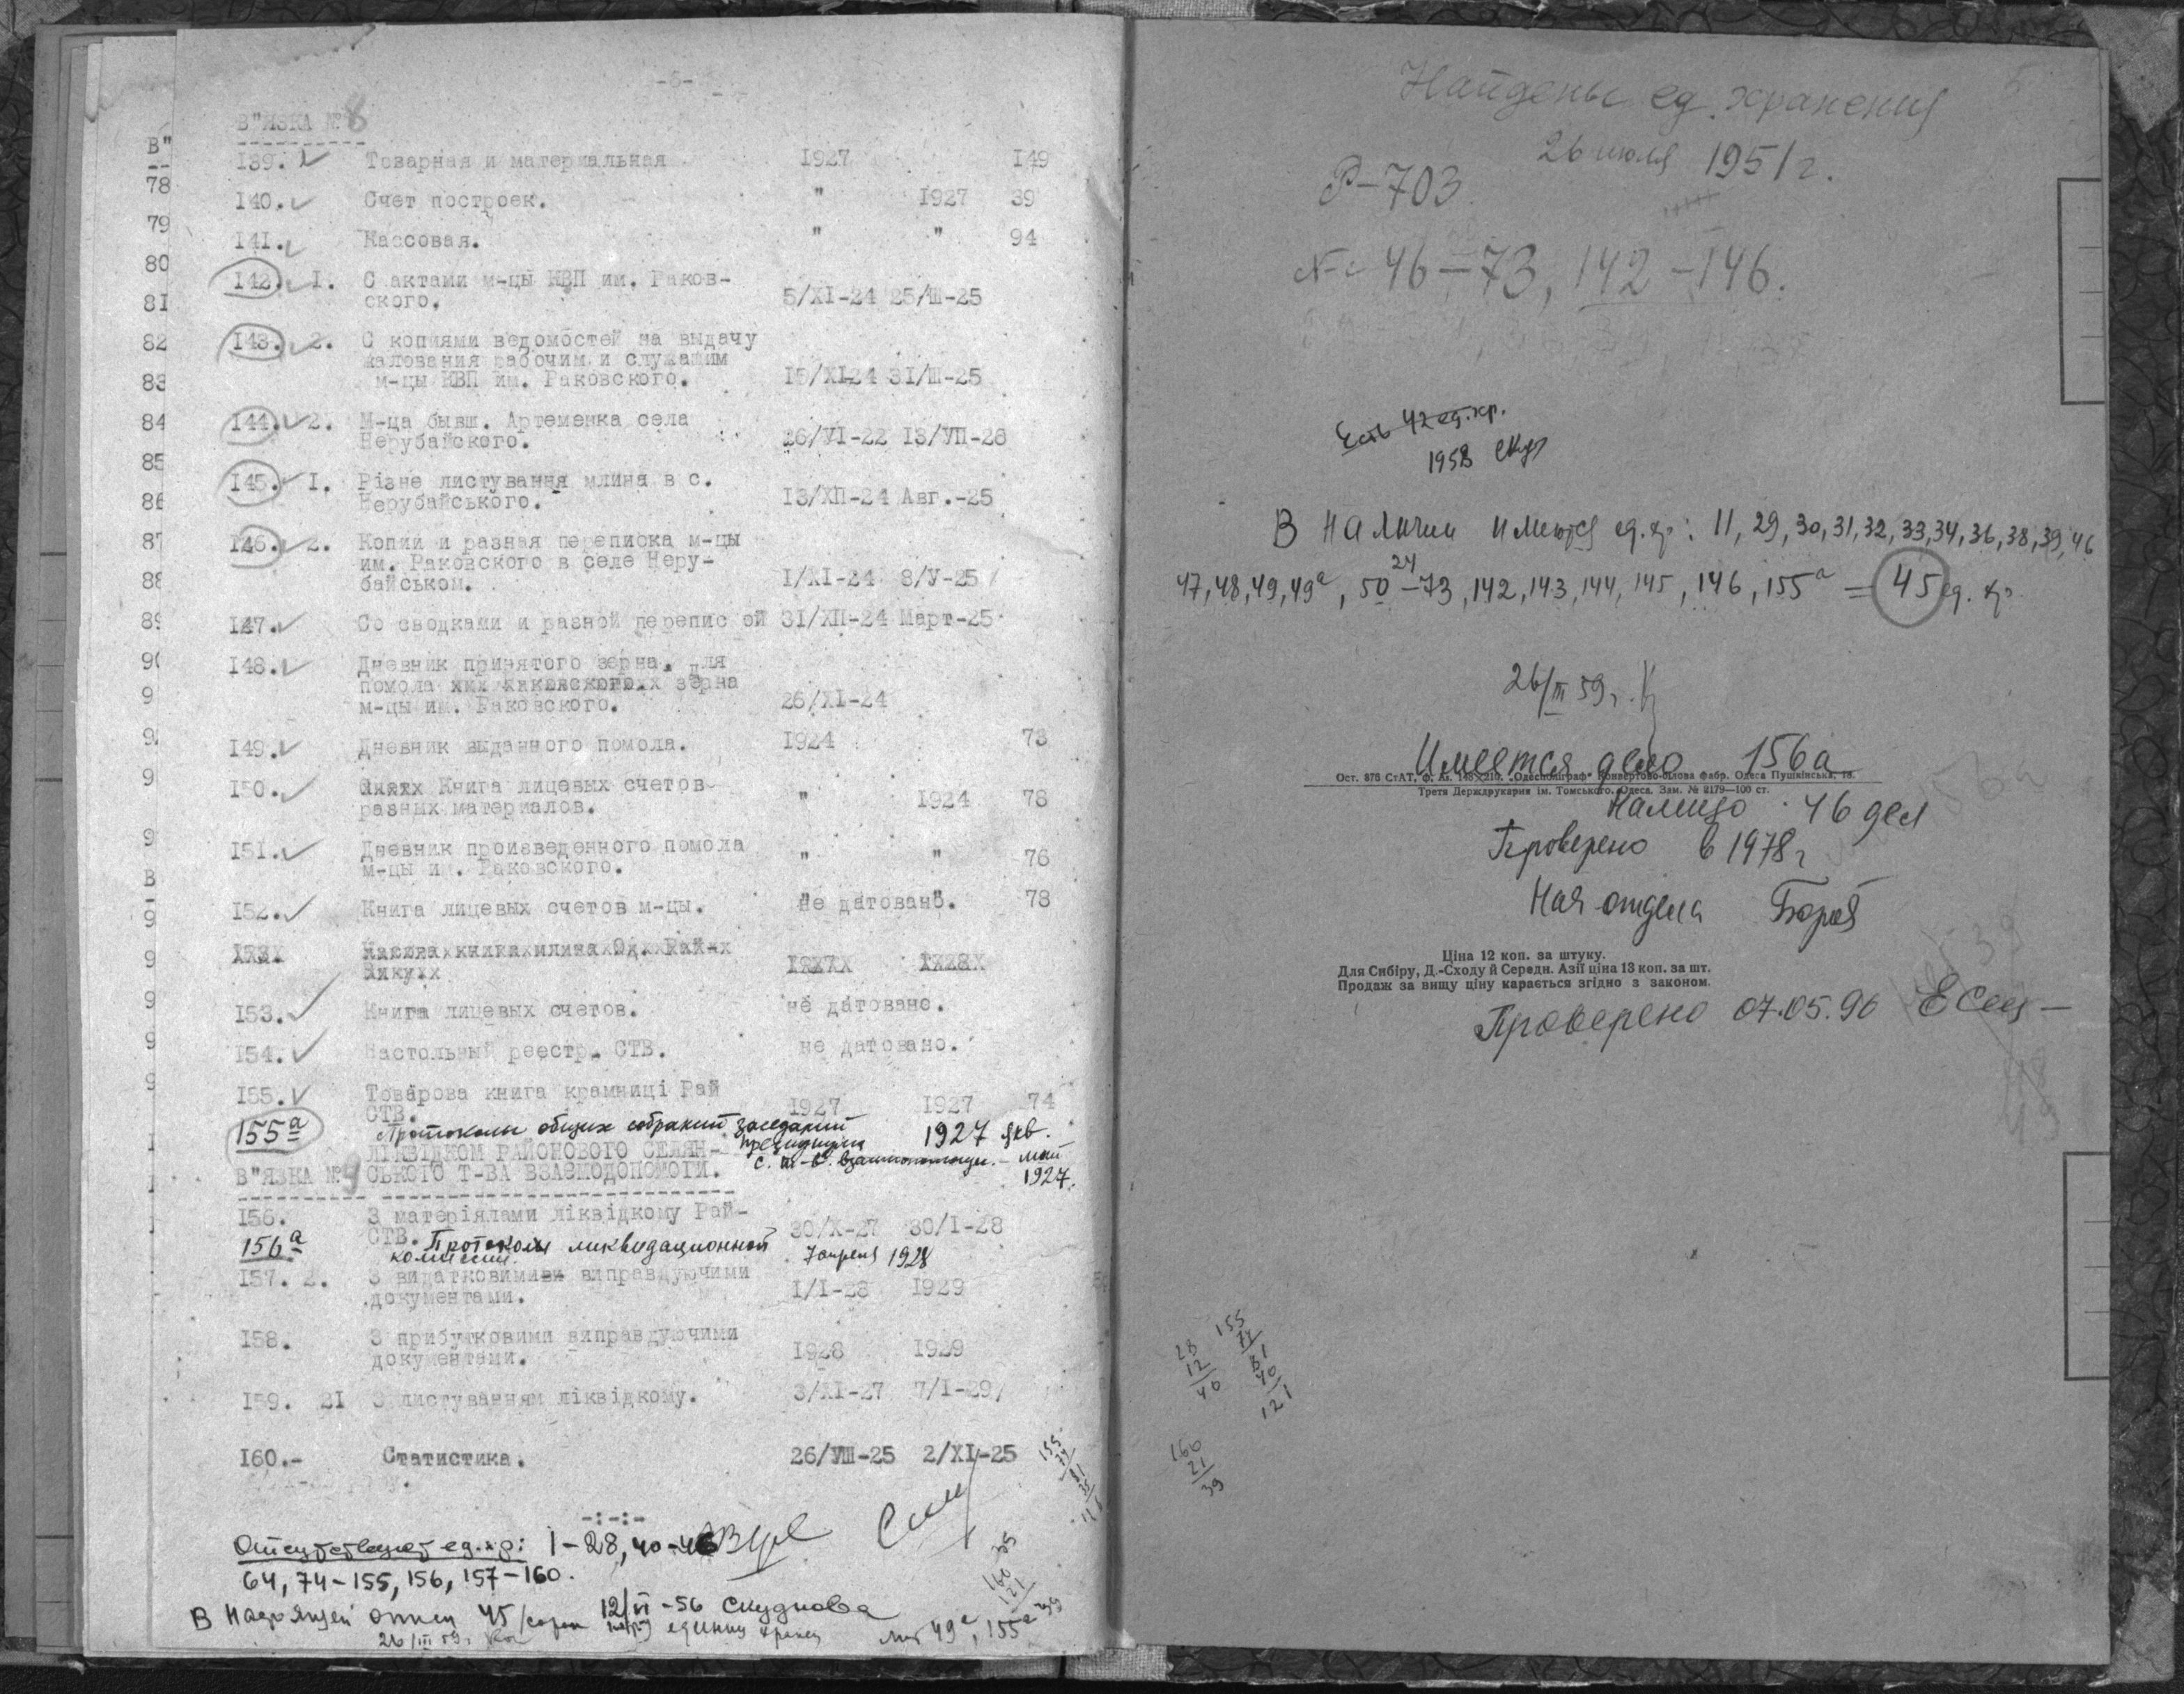 -8-
В"ЯЗКА № 8
139. Товарная и материальная 1927 149
140. Счет построек. " 1927 39
141. Кассовая. " " 94
142. 1. С актами м-цы КВП им. Раков-
ского. 5/XI-24 25/Ш-25
143. 2. С копиями ведомостей на выдачу
жалования рабочим и служащим
м-цы КВП им. Раковского. 15/XI-24 31/Ш-25
144. 2. М-ца бывш. Артеменка села
Нерубайского. 26/VI-22 13/УП-26
145. 1. Різне листування млина в с.
Нерубайського. 13/ХП-24 Авг.-25
146. 2. Копии и разная переписка м-цы
им. Раковского в селе Неру-
байськом. 1/XI-24 8/У-25
147. Со сводками и разной перепис ой 31/ХП-24 Март-25
148. Дневник принятого зерна. для
помола зерна
м-цы им. Раковского. 26/XI-24
149. Дневник выданного помола. 1924 73
150. Книга лицевых счетов
разных материалов. " 1924 78
151. Дневник произведенного помола
м-цы им. Раковского. " " 76
152. Книга лицевых счетов м-цы. не датовано. 78
153. Книга лицевых счетов. не датовано.
154. Настольный реестр. СТВ. не датовано.
155. Товарова книга крамниці Рай
СТВ. 1927 1927 74
155а Протоколы общих собраний заседаний
президиума 1927 янв.
с. т-ва взаимопомощи. - май
1927.
ЛІКВІДКОМ РАЙОНОВОГО СЕЛЯН-
В"ЯЗКА № 9 СЬКОГО Т-ВА ВЗАЄМОДОПОМОГИ.
156. З матеріялами ліквідкому Рай-
СТВ. 30/X-27 30/I-28
156а Протоколы ликвидационной
комиссии. 7 апреля 1928
157. 2. З видатковими виправдуючими
документами. 1/I-28 1929
158. З прибутковими виправдуючими
документами. 1928 1929
159. 21 З листуванням ліквідкому. 3/XI-27 7/I-29
160.- Статистика. 26/УШ-25 2/XI-25
-:-:-
Отсутствуют ед.хр: 1-28, 40-46
64, 74-155, 156, 157-160.
12/VI-56 Скуднова
В настоящей описи 45 /сорок пять/ единиц хранен
26/III 59г. лит 49а, 155а
В"
78
79
80
81
82
83
84
85
86
87
88
89
90
Найдены ед. хранения
26 июля 1951г.
Р-703
№№ 46-73, 142-146.
Есть 42 ед.хр.
1958 Скуд
В наличии имеются ед.хр: 11, 29, 30, 31, 32, 33, 34, 36, 38, 39, 46
47, 48, 49, 49а, 50-73, 142, 143, 144, 145, 146, 155а = 45 ед. хр.
24
26/III 59г.
Имеется дело 156а
Ост. 876 СтАТ, ф. А5 148×210. „Одесполіграф" Конвертово-білова фабр. Одеса Пушкінська, 18.
Третя Держдрукарня ім. Томського. Одеса. Зам. № 2179—100 ст.
Налицо 46 дел
Проверено в 1978г
Нач отдела
Ціна 12 коп. за штуку.
Для Сибіру, Д.-Сходу й Середн. Азії ціна 13 коп. за шт.
Продаж за вищу ціну карається згідно з законом.
Проверено 07.05.96
28
12
40
155
74
81
40
121
160
21
39